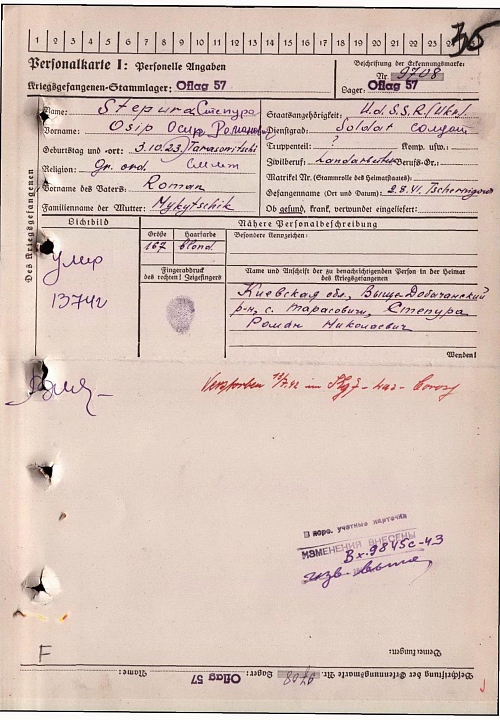 1 2 3 4 5 6 7 8 9 10 11 12 13 14 15 16 17 18 19 20 21 22 23 24
Personalkarte I: Personelle Angaben
Kriegsgefangenen-Stammlager: Oflag 57
Beschriftung der Erkennungsmarke:
Nr. 9708
Lager: Oflag 57
Des Kriegsgefangenen
Name: Stepura Степура
Vorname: Osip Осип Романов
Geburtstag und -ort: 3.10.23, Tarasowitschi
Religion: Gr. ord.
Vorname des Vaters: Roman
Familienname der Mutter: Mykytschik
Staatsangehörigkeit: U.d.S.S.R. (Ukr)
Dienstgrad: Soldat солдат
Truppenteil: Komp. usw.:
Zivilberuf: Landarbeiter Berufs-Gr.:
Matrikel Nr. (Stammrolle des Heimatstaates):
Gefangennahme (Ort und Datum): 2.8.41, Tschernigow
Ob gesund, krank, verwundet eingeliefert:
Lichtbild
Nähere Personalbeschreibung
Größe Haarfarbe Besondere Kennzeichen:
167 blond
Fingerabdruck
des rechten! Zeigefingers
Name und Anschrift der zu benachrichtigenden Person in der Heimat
des Kriegsgefangenen
Киевская обл., Выще-Добачанский
р-н, с. Тарасовичи, Степура
Роман Николаевич
Wenden!
умер
1374г
Verstorben
in
В персо. учетные карточки
ИЗМЕНЕНИЯ ВНЕСЕНЫ
Вх. 9845с-43
F
Bemerkungen:
Beschriftung der Erkennungsmarke Nr. 9708 Lager: Oflag 57 Name: